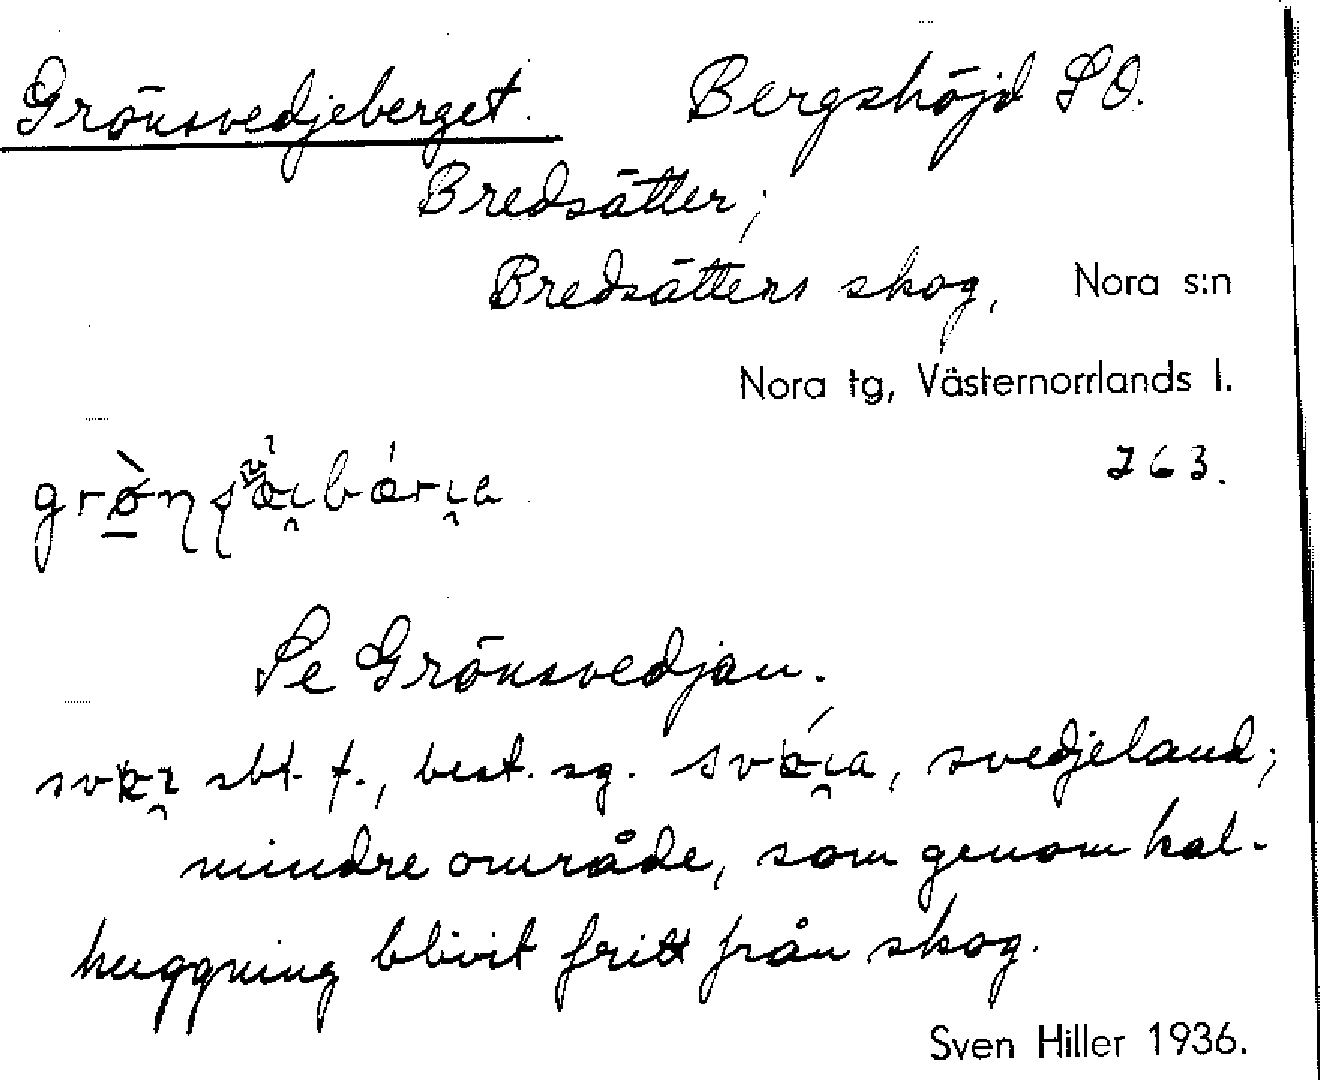 Grönsvedjeberget. Bergshöjd SO.
Bredsätter;
Bredsätters skog, Nora s:n
Nora tg, Västernorrlands l.
263.
Se Grönsvedjan.
sbt. f., best. sg. svedjeland;
mindre område, som genom kal-
huggning blivit fritt från skog.
Sven Hiller 1936.